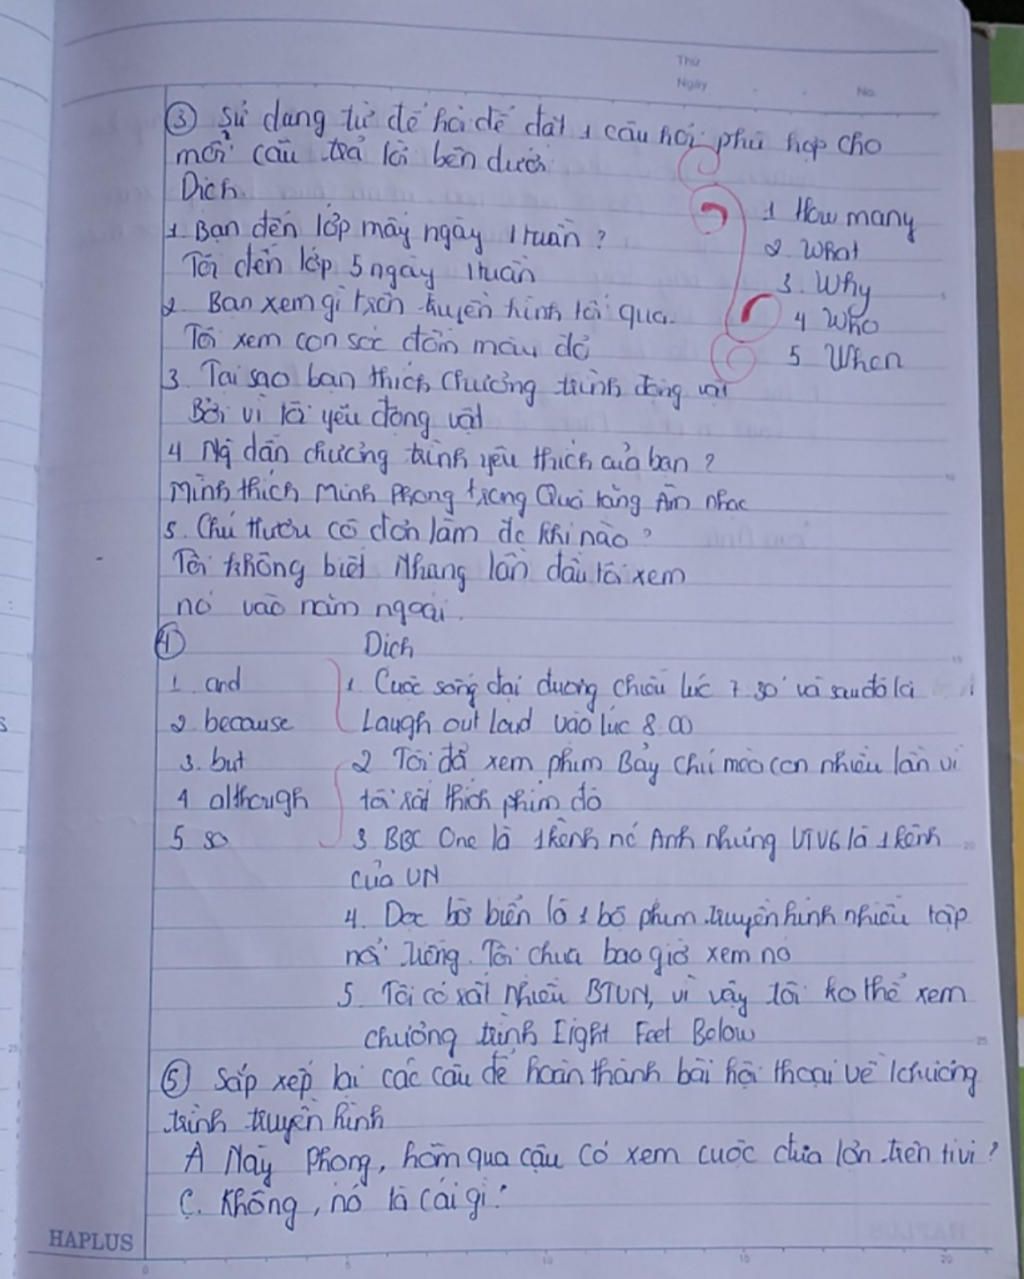 Thứ
Ngày No.
③ Sử dụng từ để hỏi để đặt 1 câu hỏi phù hợp cho
mỗi câu trả lời bên dưới
Dịch
1 How many
1. Bạn đến lớp mấy ngày 1 tuần ?
2. What
Tôi đến lớp 5 ngày 1 tuần
3. Why
2. Bạn xem gì trên truyền hình tối qua.
4 Who
Tôi xem con sóc đốm màu đỏ
5 When
3. Tại sao bạn thích chương trình động vật
Bởi vì tôi yêu động vật
4 Ng dẫn chương trình yêu thích của bạn ?
Mình thích Minh Phong trong Quà tặng Âm nhạc
5. Chú hươu cô đơn làm đc khi nào ?
Tôi không biết Nhưng lần đầu tôi xem
nó vào năm ngoái.
④ Dịch
1. and 1. Cuộc sống đại dương chiếu lúc 7 30' và sau đó là
2. because Laugh out loud vào lúc 8.00
3. but 2 Tôi đã xem phim Bảy chú mèo con nhiều lần vì
4 although tôi rất thích phim đó
5 so 3 BBC One là 1 kênh nc Anh nhưng VTV6 là 1 kênh
của VN
4. Dọc bờ biển là 1 bộ phim truyền hình nhiều tập
nổi tiếng. Tôi chưa bao giờ xem nó
5. Tôi có rất nhiều BTVN, vì vậy tôi ko thể xem
chương trình Eight Feet Below
⑤ Sắp xếp lại các câu để hoàn thành bài hội thoại về 1 chương
trình truyền hình
A Này Phong, hôm qua cậu có xem cuộc đua lớn trên tivi ?
C. Không, nó là cái gì ?
HAPLUS